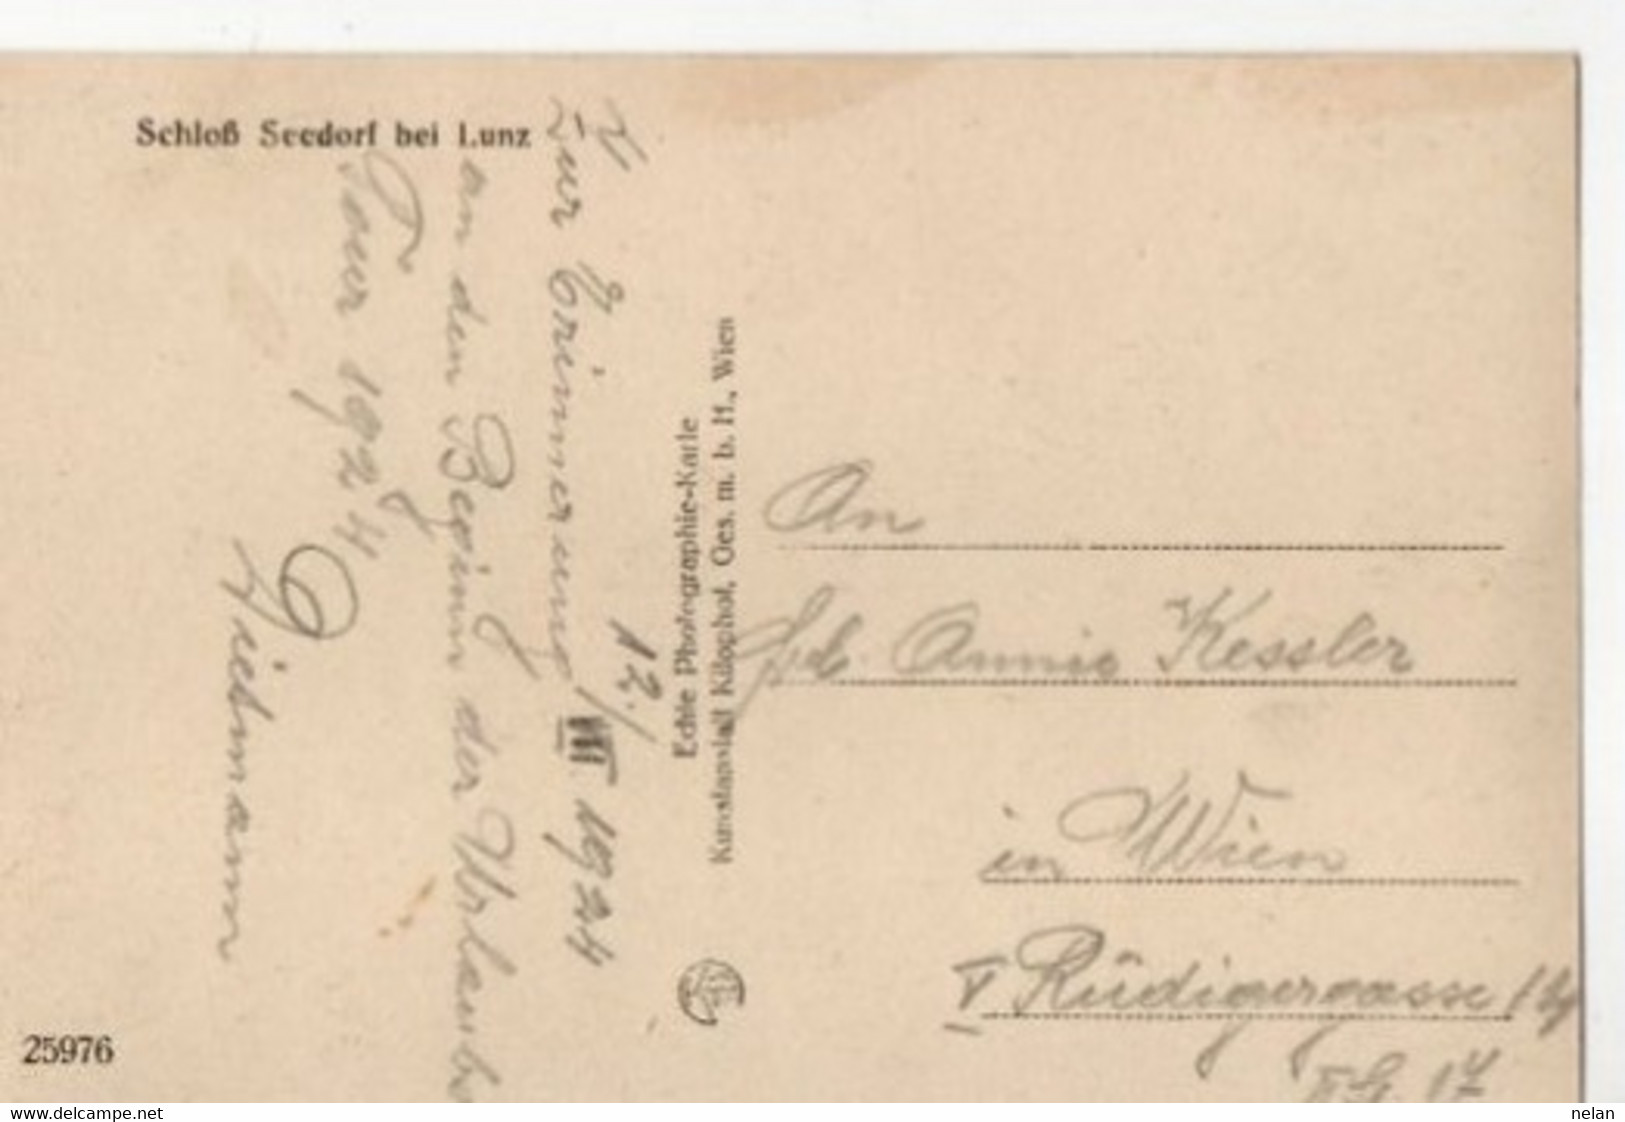 Schloß Seedorf bei Lunz
Zur Erinnerung
an den Beginn der Urlaubs
Tour 1924
12./VIII 1924
Echte Photographie-Karte
Kunstanstalt Kilophot, Ges. m. b. H., Wien
An
Annie Kessler
in Wien
V Rüdigergasse
25976
www.delcampe.net
nelan